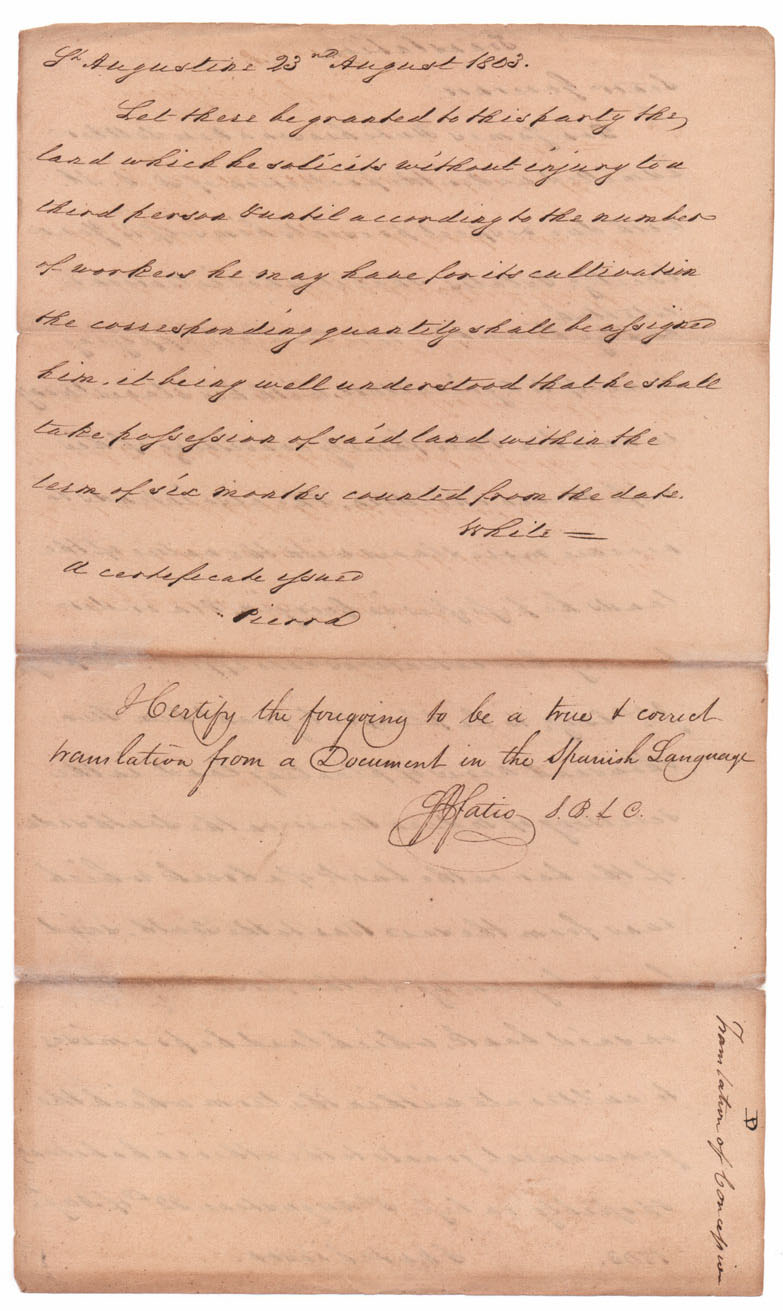 St Augustine 23rd August 1803.
Let there be granted to this party the
land which he solicits without injury to a
third person & until according to the number
of workers he may have for its cultivation
the corresponding quantity shall be assigned
him, it being well understood that he shall
take possession of said land within the
term of six months counted from the date.
White =
A certificate issued
Pierra
I Certify the foregoing to be a true & correct
translation from a Document in the Spanish Language
Fatio S. B. L C.
D
Translation of Concession